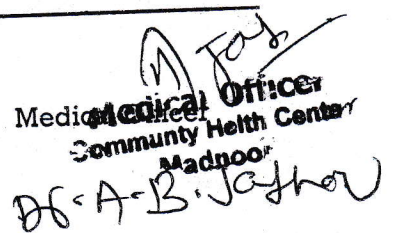 Medical Officer
Medical Officer
Community Helth Center
Madnoor
Dr. A. B.